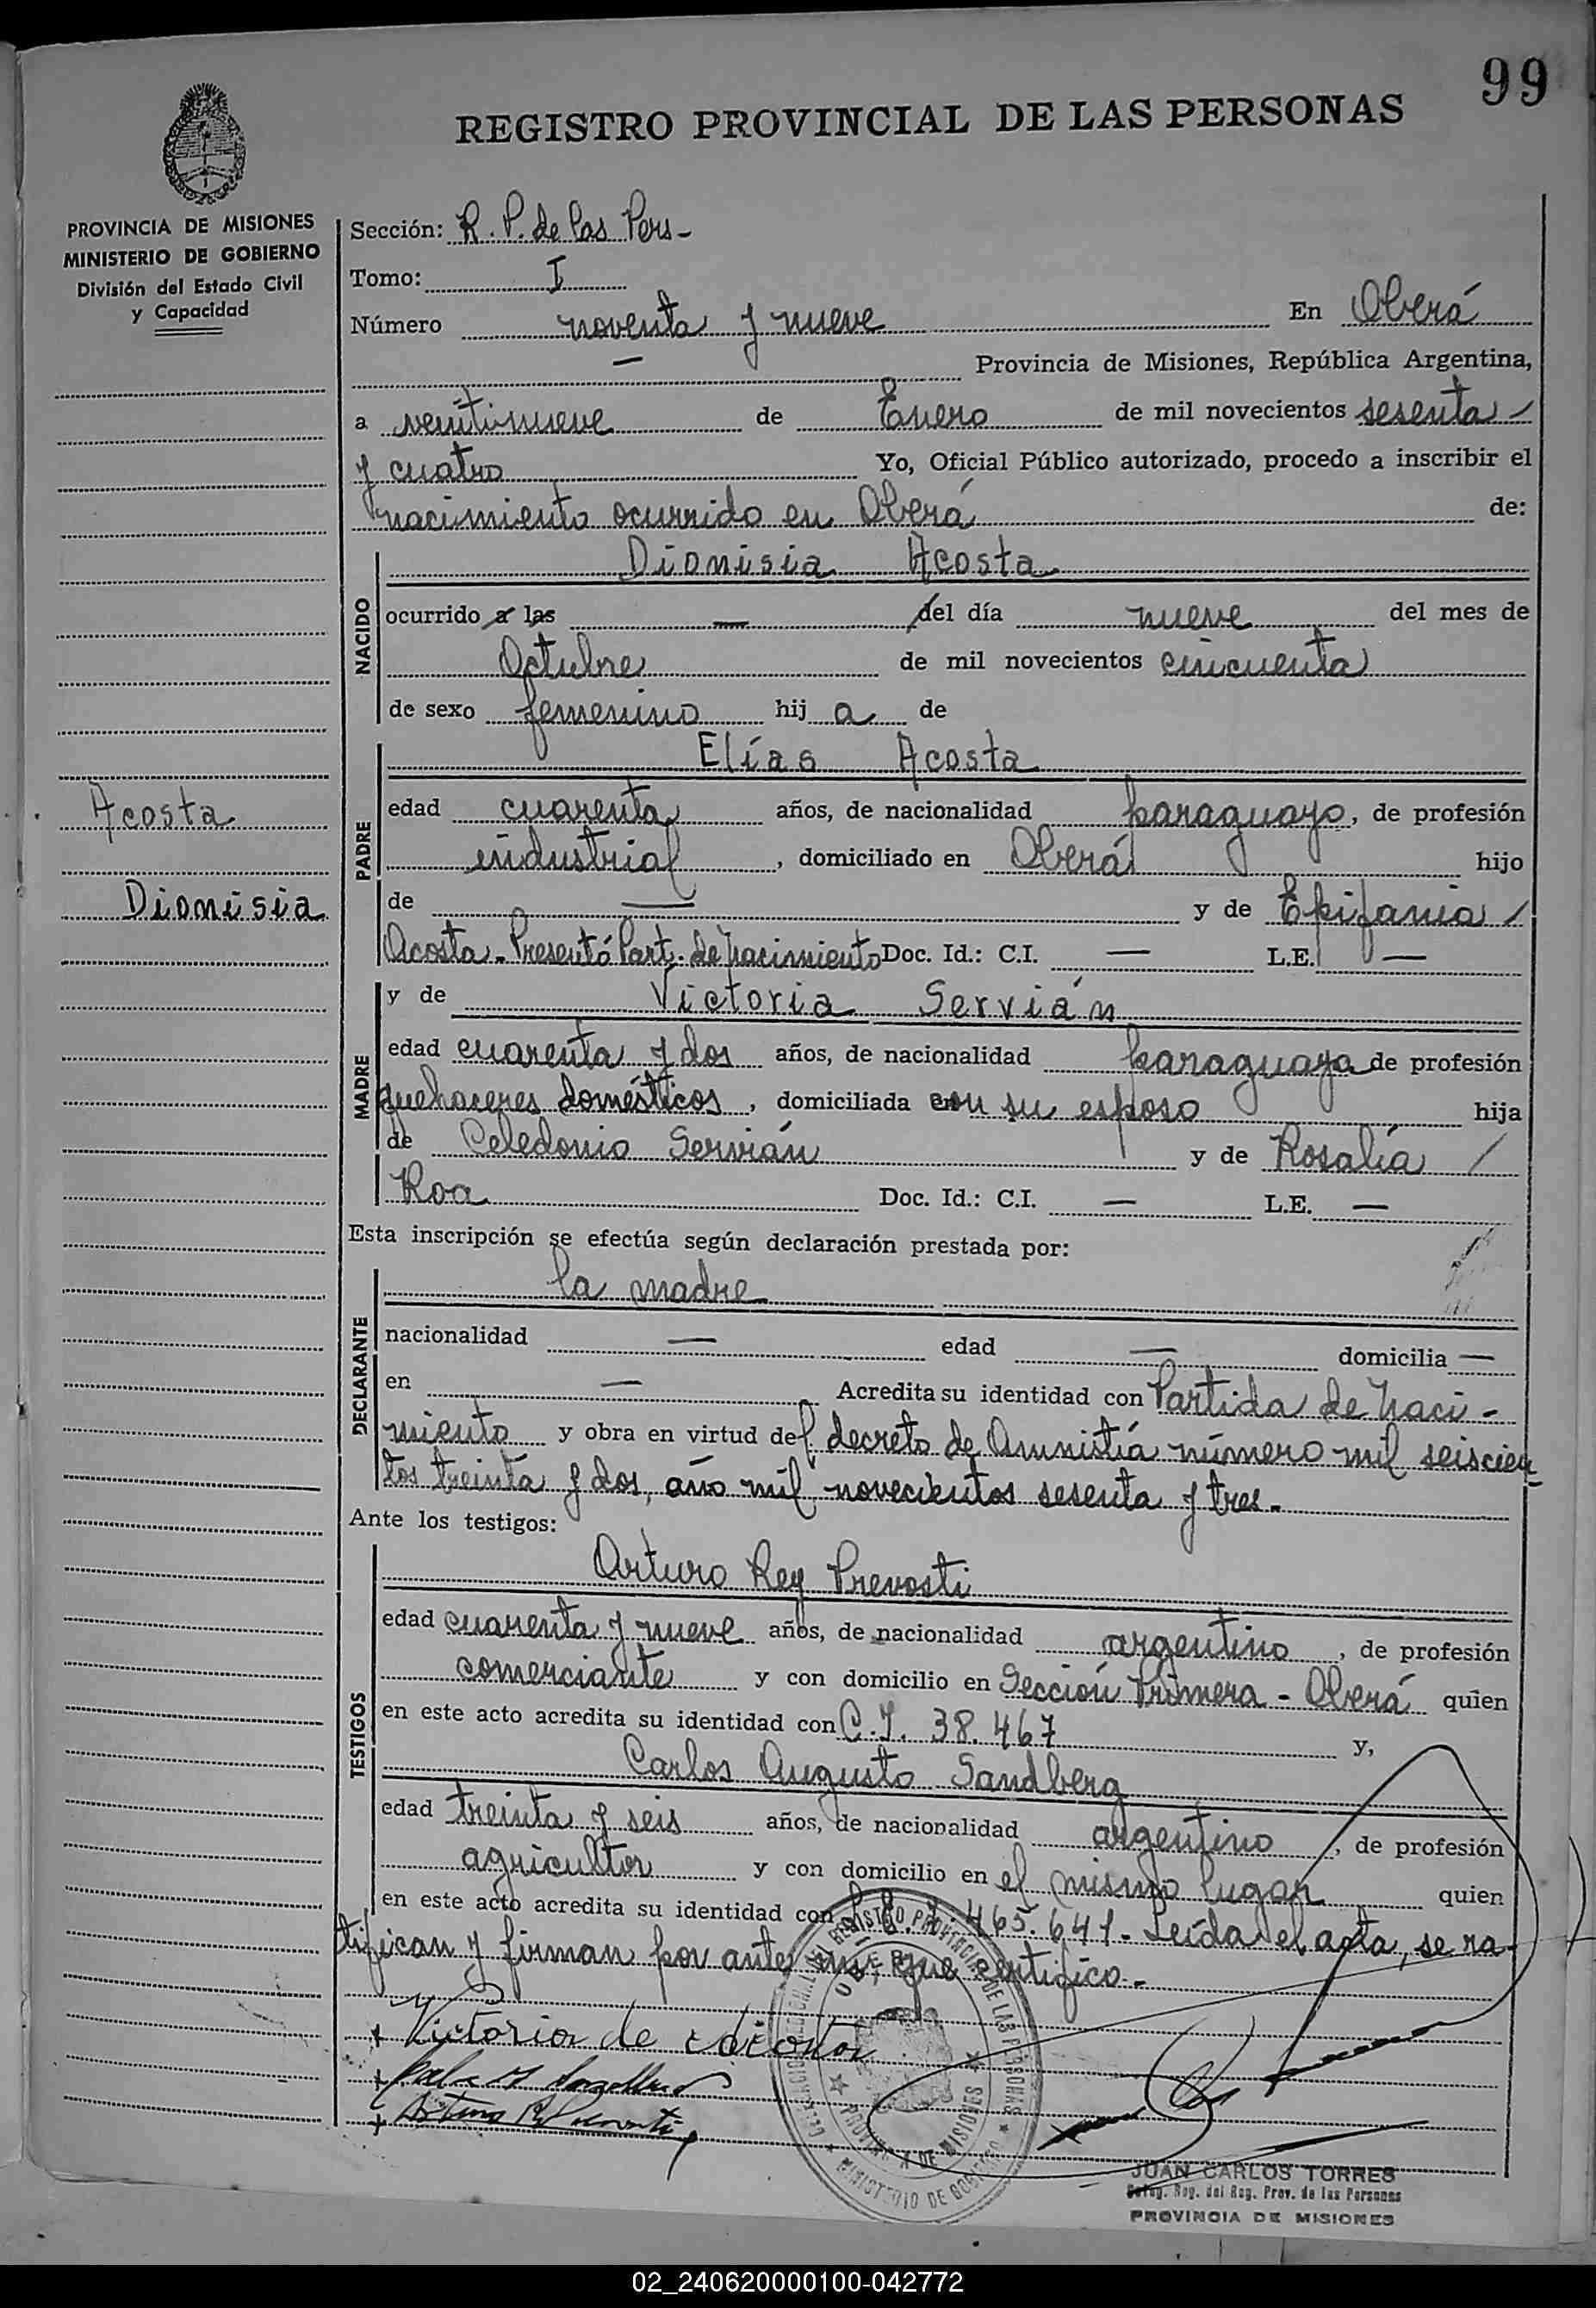 99
REGISTRO PROVINCIAL DE LAS PERSONAS
PROVINCIA DE MISIONES
MINISTERIO DE GOBIERNO
División del Estado Civil
y Capacidad
Acosta
Dionisia
Sección: R. P. de las Pers-
Tomo: I
Número noventa y nueve En Oberá
— Provincia de Misiones, República Argentina,
a veintinueve de Enero de mil novecientos sesenta
y cuatro Yo, Oficial Público autorizado, procedo a inscribir el
nacimiento ocurrido en Oberá de:
NACIDO
Dionisia Acosta
ocurrido a las — del día nueve del mes de
Octubre de mil novecientos cincuenta
de sexo femenino hij a de
PADRE
Elías Acosta
edad cuarenta años, de nacionalidad paraguayo, de profesión
industrial, domiciliado en Oberá hijo
de — y de Epifania
Acosta - Presentó Part. de nacimiento Doc. Id.: C.I. — L.E. —
MADRE
y de Victoria Servián
edad cuarenta y dos años, de nacionalidad paraguaya de profesión
quehaceres domésticos, domiciliada con su esposo hija
de Celedonio Servián y de Rosalía
Roa Doc. Id.: C.I. — L.E. —
Esta inscripción se efectúa según declaración prestada por:
DECLARANTE
la madre
nacionalidad — edad — domicilia —
en — Acredita su identidad con Partida de naci-
miento y obra en virtud del decreto de Amnistía número mil seiscien
tos treinta y dos, año mil novecientos sesenta y tres.-
Ante los testigos:
TESTIGOS
Arturo Rey Prevosti
edad cuarenta y nueve años, de nacionalidad argentino, de profesión
comerciante y con domicilio en Sección Primera - Oberá quien
en este acto acredita su identidad con C.I. 38.467 y,
Carlos Augusto Sandberg
edad treinta y seis años, de nacionalidad argentino, de profesión
agricultor y con domicilio en el mismo lugar quien
en este acto acredita su identidad con 465.641.- Leída el acta, se ra-
tifican y firman por ante mí que certifico.-
Victoria de Acosta
REGISTRO PROVINCIAL DE LAS PERSONAS
OBERÁ
PROVINCIA DE MISIONES
MINISTERIO DE GOBIERNO
JUAN CARLOS TORRES
Reg. del Reg. Prov. de las Personas
PROVINCIA DE MISIONES
02_240620000100-042772